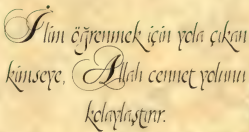 İlim öğrenmek için yola çıkan
kimseye, Allah cennet yolunu
kolaylaştırır.